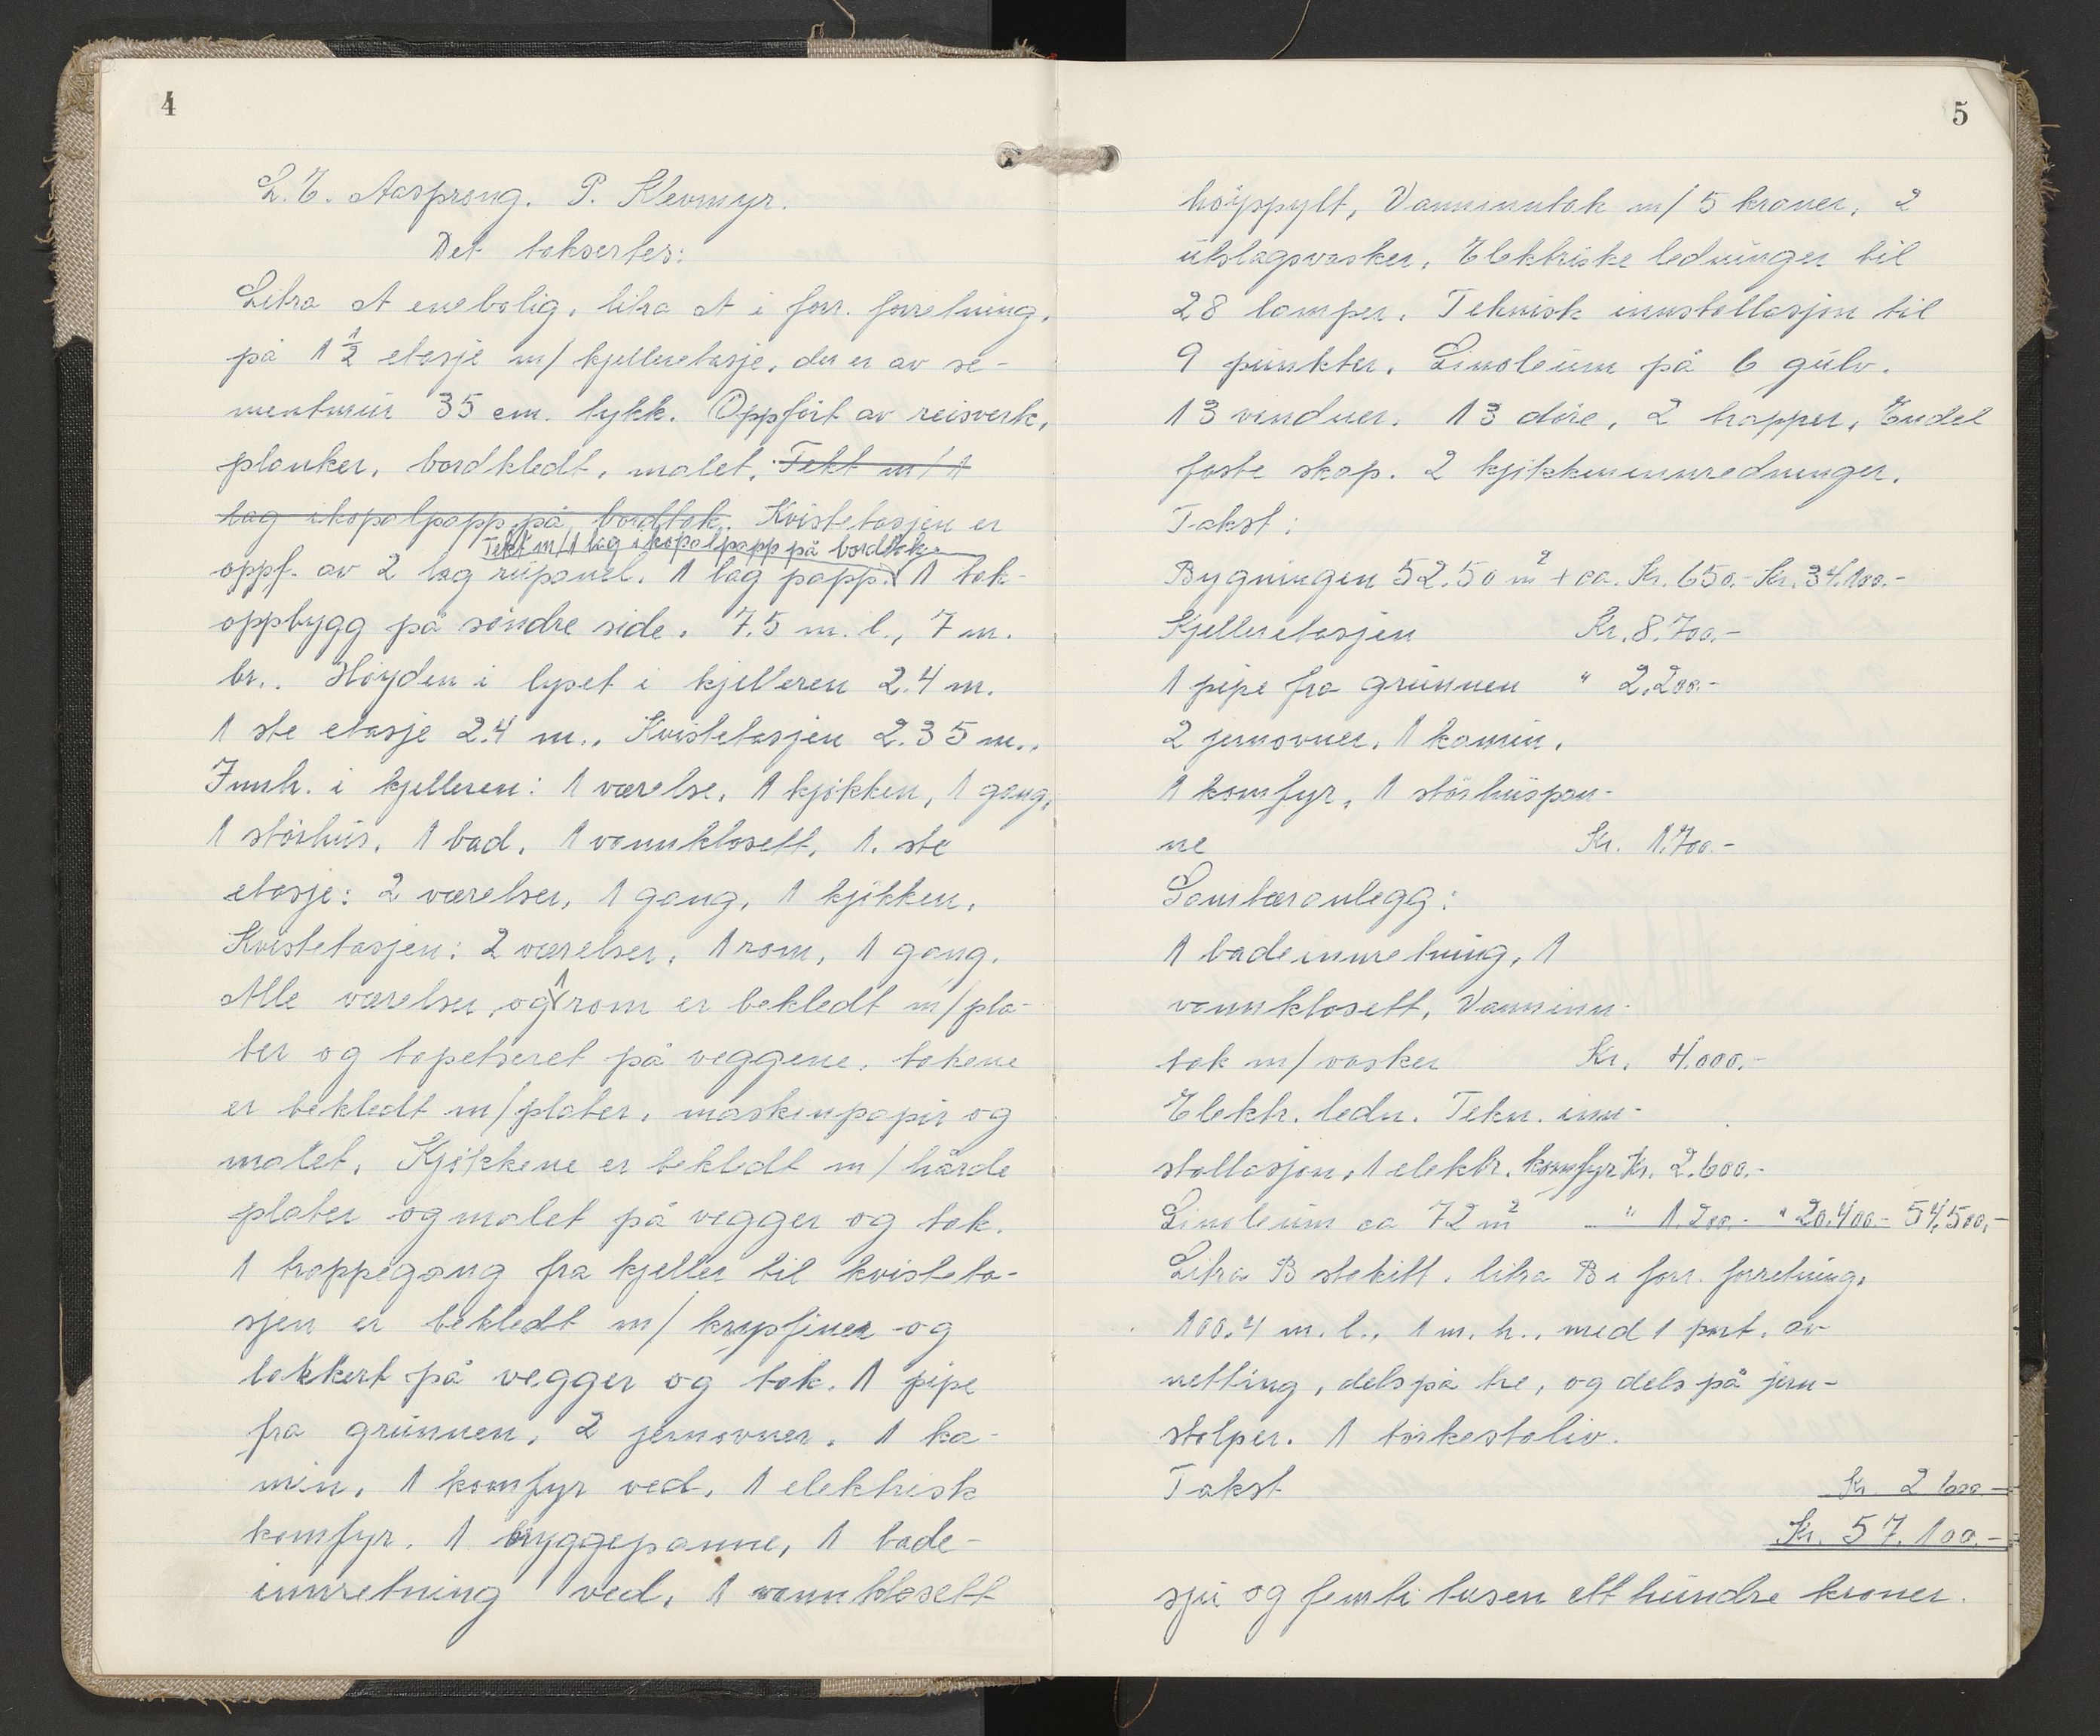 4
L. T. Aasprong. P. Klevmyr.
Det taksertes:
Litra A enebolig, litra A i forr. forretning,
på 1 1/2 etasje m/ kjelleretasje, der er av se-
mentmur 35 cm. tykk. Oppfört av reisverk,
planker, bordkledt, malet. Tekt m/ 1
lag ikopalpapp på bordtak. Kvistetasjen er
Tekt m/ 1 lag ikopalpapp på bordtak.
oppf. av 2 lag rupanel. 1 lag papp. 1 tak-
oppbygg på söndre side. 7.5 m. l., 7 m.
br.. Höyden i lyset i kjelleren 2.4 m.
1 ste etasje 2.4 m., Kvistetasjen 2.35 m.,
Innh. i kjelleren: 1 værelse, 1 kjökken, 1 gang,
1 störhus, 1 bad, 1 vannklosett, 1. ste
etasje: 2 værelser, 1 gang, 1 kjökken.
Kvistetasjen: 2 værelser, 1 rom, 1 gang.
Alle værelser og 1 rom er bekledt m/ pla-
ter og tapetseret på veggene, takene
er bekledt m/ plater, maskinpapir og
malet. Kjökkene er bekledt m/ hårde
plater og malet på vegger og tak.
1 trappegang fra kjeller til kvisteta-
sjen er bekledt m/ krysfiner og
lakkert på vegger og tak. 1 pipe
fra grunnen, 2 jernovner, 1 ka-
min, 1 komfyr ved, 1 elektrisk
komfyr. 1 bryggepanne, 1 bade-
innretning ved, 1 vannklosett
5
höyspylt, Vanninntak m/ 5 kraner, 2
utslagsvasker, Elektriske ledninger til
28 lamper. Teknisk innstallasjon til
9 punkter. Linoleum på 6 gulv.
13 vinduer. 13 döre, 2 trapper, Endel
faste skap. 2 kjökkeninnredninger.
Takst:
Bygningen 52.50 m2 + ca. Kr. 650.- Kr. 34.100.-
Kjelleretasjen Kr. 8.700.-
1 pipe fra grunnen " 2.200.-
2 jernovner, 1 kamin,
1 komfyr, 1 störhuspan-
ne Kr. 1.700.-
Sanitæranlegg:
1 badeinnretning, 1
vannklosett, Vanninn-
tak m/ vasker Kr. 4.000.-
Elektr. ledn. Tekn. inn-
stallasjon, 1 elektr. komfyr Kr. 2.600.-
Linoleum ca 72 m2 " 1.200.- " 20.400.- 54.500,-
Litra B stakitt, litra B i forr. forretning,
100.4 m. l., 1 m. h., med 1 port, av
netting, dels på tre, og dels på jern-
stolper. 1 törkestativ.
Takst Kr. 2 600.-
Kr. 57.100.-
sju og femti tusen ett hundre kroner.